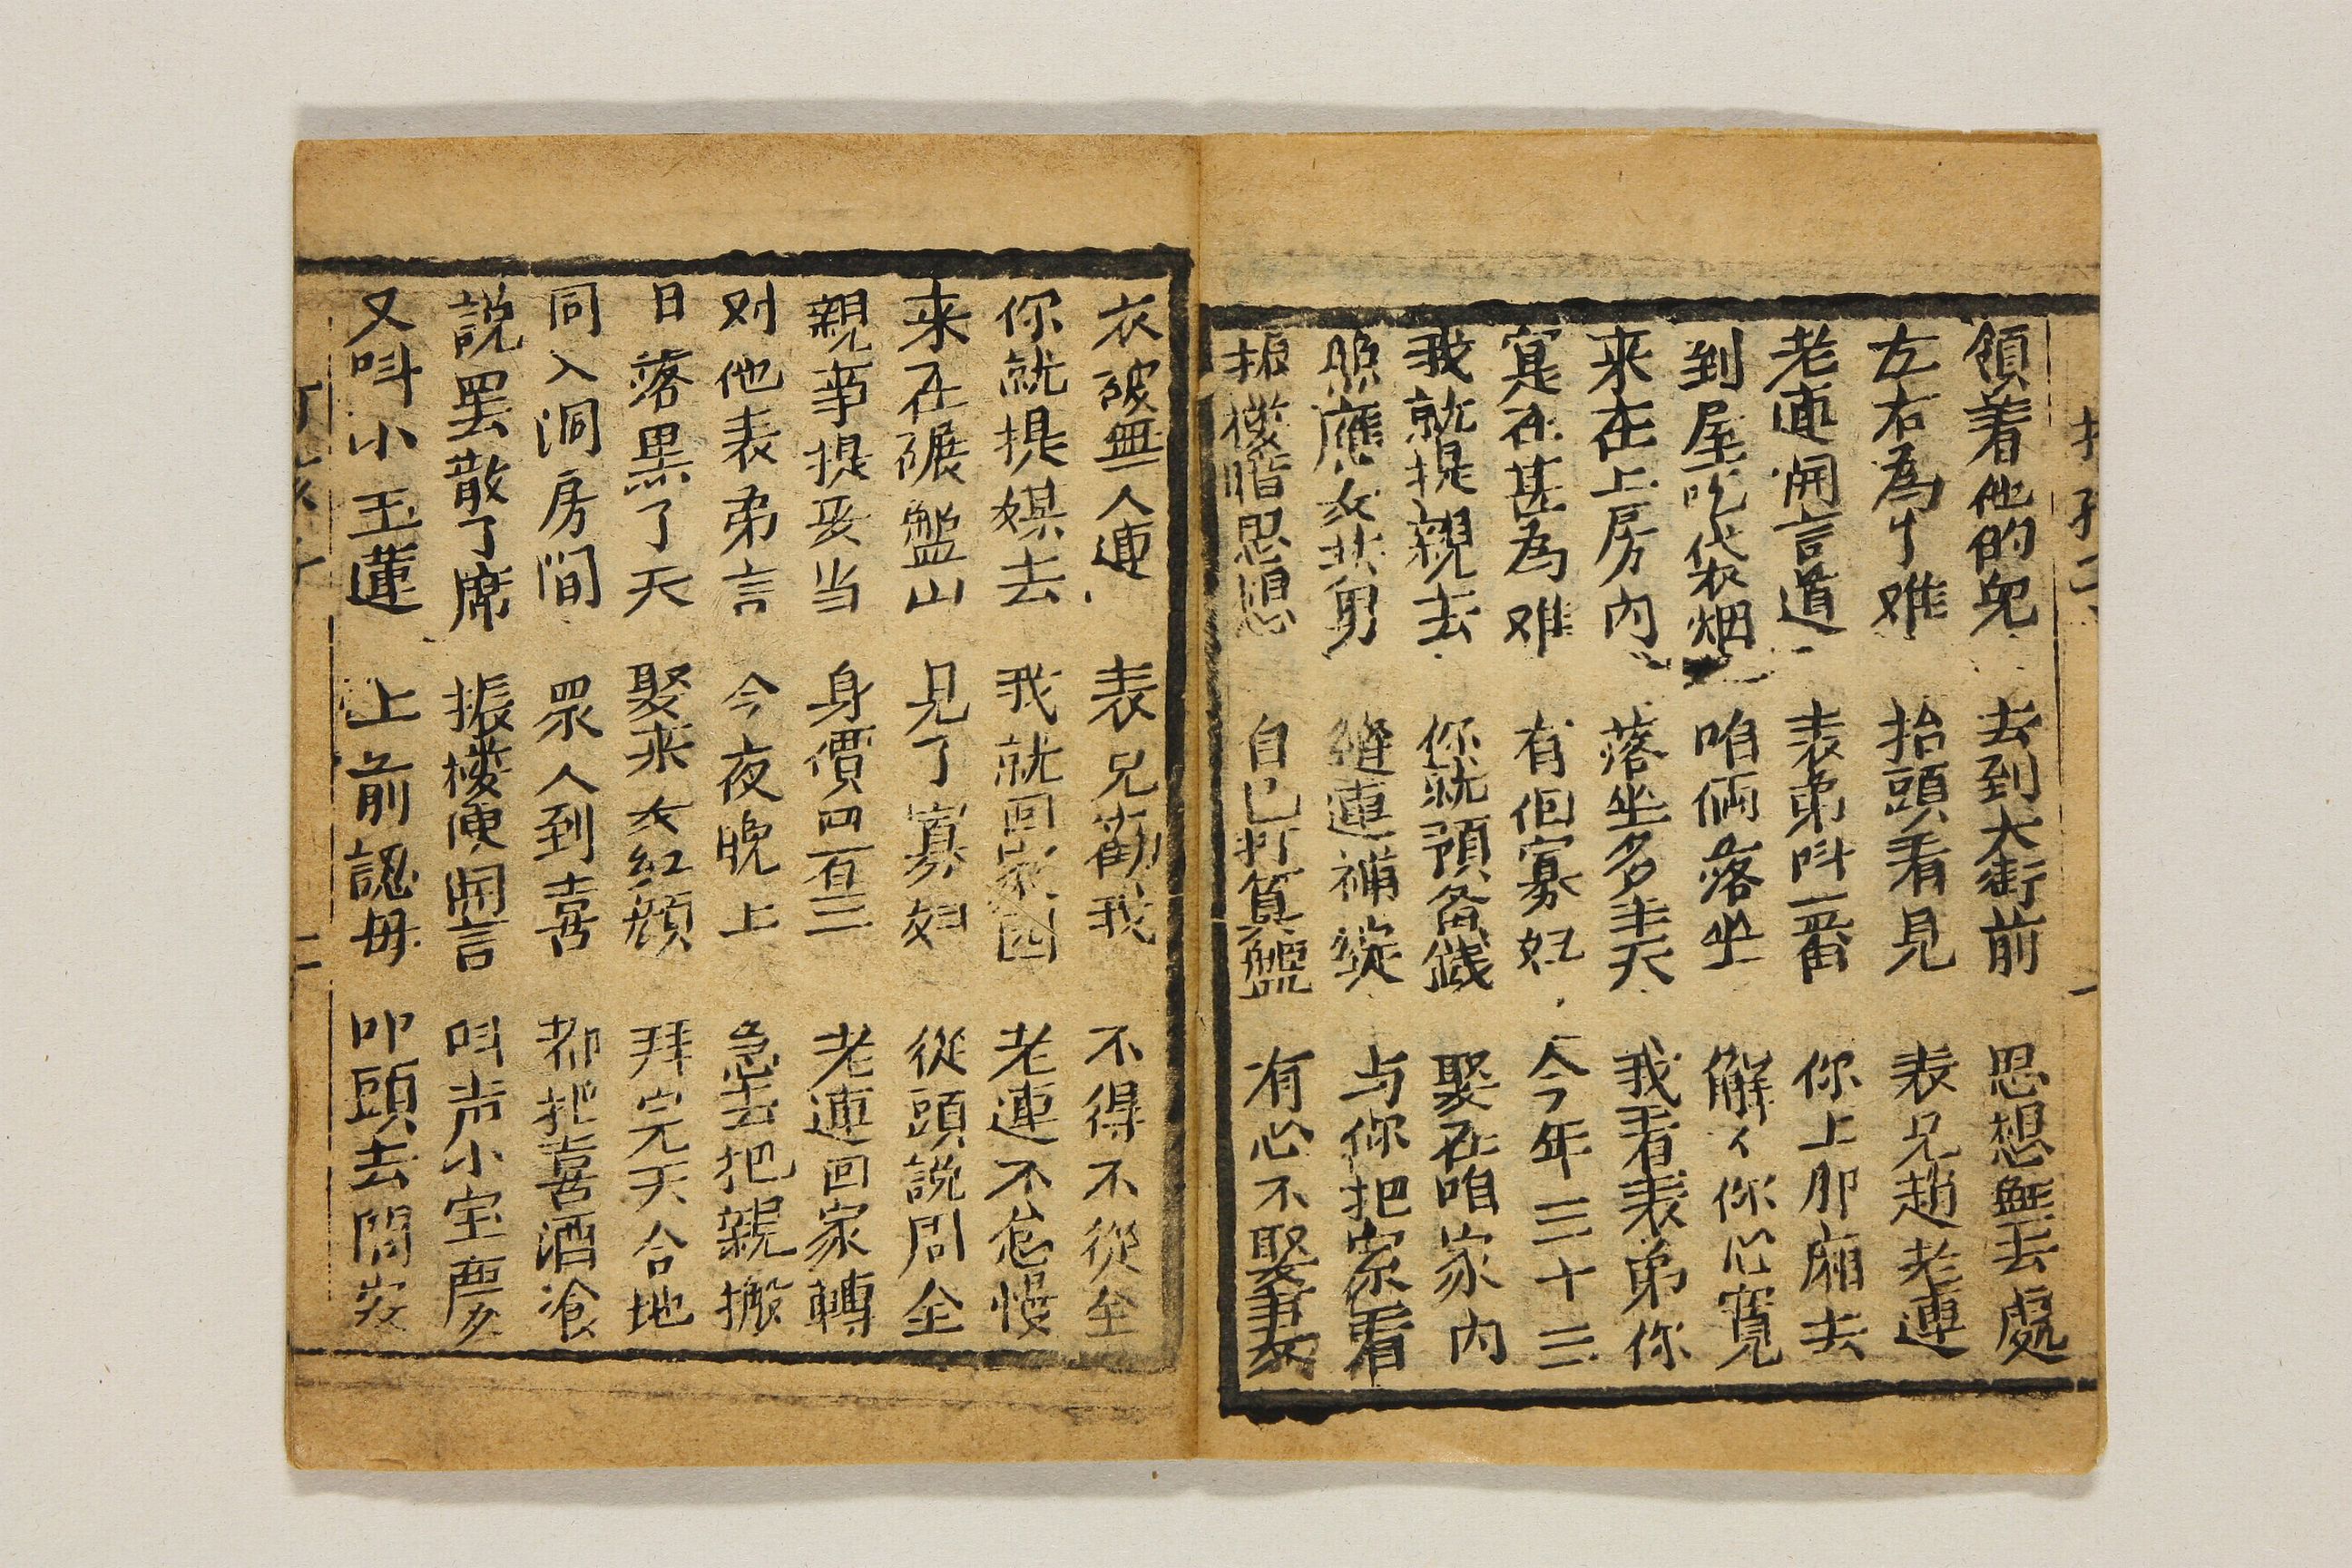 領着他的兒 去到大街前 思想無去處
左右為了难 抬頭看見 表兄趙老連
老連開言道 表弟呌一番 你上那廂去
到屋吃袋烟 咱俩落坐 解々你心寬
来在上房内 落坐多半天 我看表弟你
寔在甚為难 有個寡妇 今年三十三
我就提親去 你就預备錢 娶在咱家内
照應女共男 縫連補綻 与你把家看
振楼暗思想 自己打算盤 有心不娶妻
衣破無人連 表兄勸我 不得不從全
你就提媒去 我就回家园 老連不怠慢
来在碾盤山 見了寡妇 從頭説周全
親事提妥当 身價四百三 老連回家轉
对他表弟言 今夜晚上 急去把親搬
日落黑了天 娶来女紅顔 拜完天合地
同入洞房間 眾人到喜 都把喜酒飡
説罢散了席 振楼便開言 呌声小宝慶
又呌小玉蓮 上前認母 叩頭去問安
二